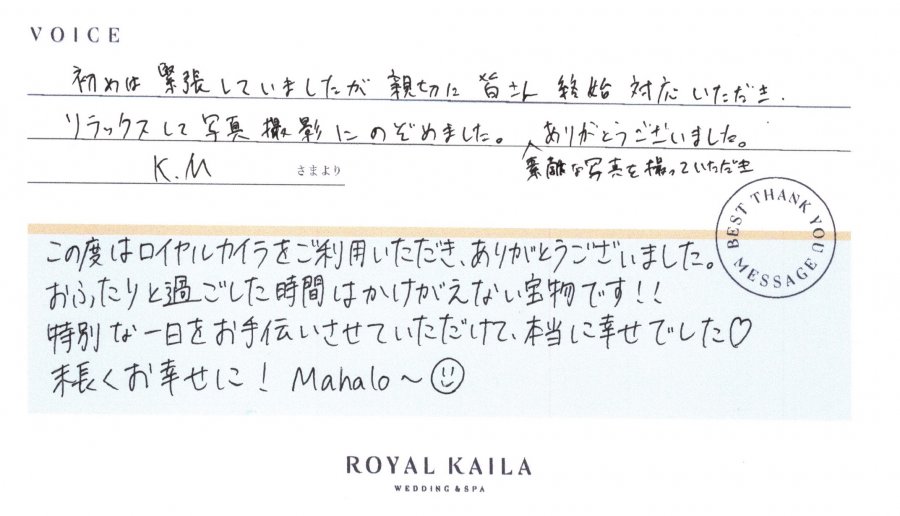 VOICE
初めは緊張していましたが親切に皆さん終始対応いただき.
リラックスして写真撮影にのぞめました。ありがとうございました。
素敵な写真を撮っていただき
K.M さまより
BEST THANK YOU MESSAGE
この度はロイヤルカイラをご利用いただき、ありがとうございました。
おふたりと過ごした時間はかけがえない宝物です!!
特別な一日をお手伝いさせていただけて、本当に幸せでした♡
末長くお幸せに! Mahalo～☺
ROYAL KAILA
WEDDING & SPA